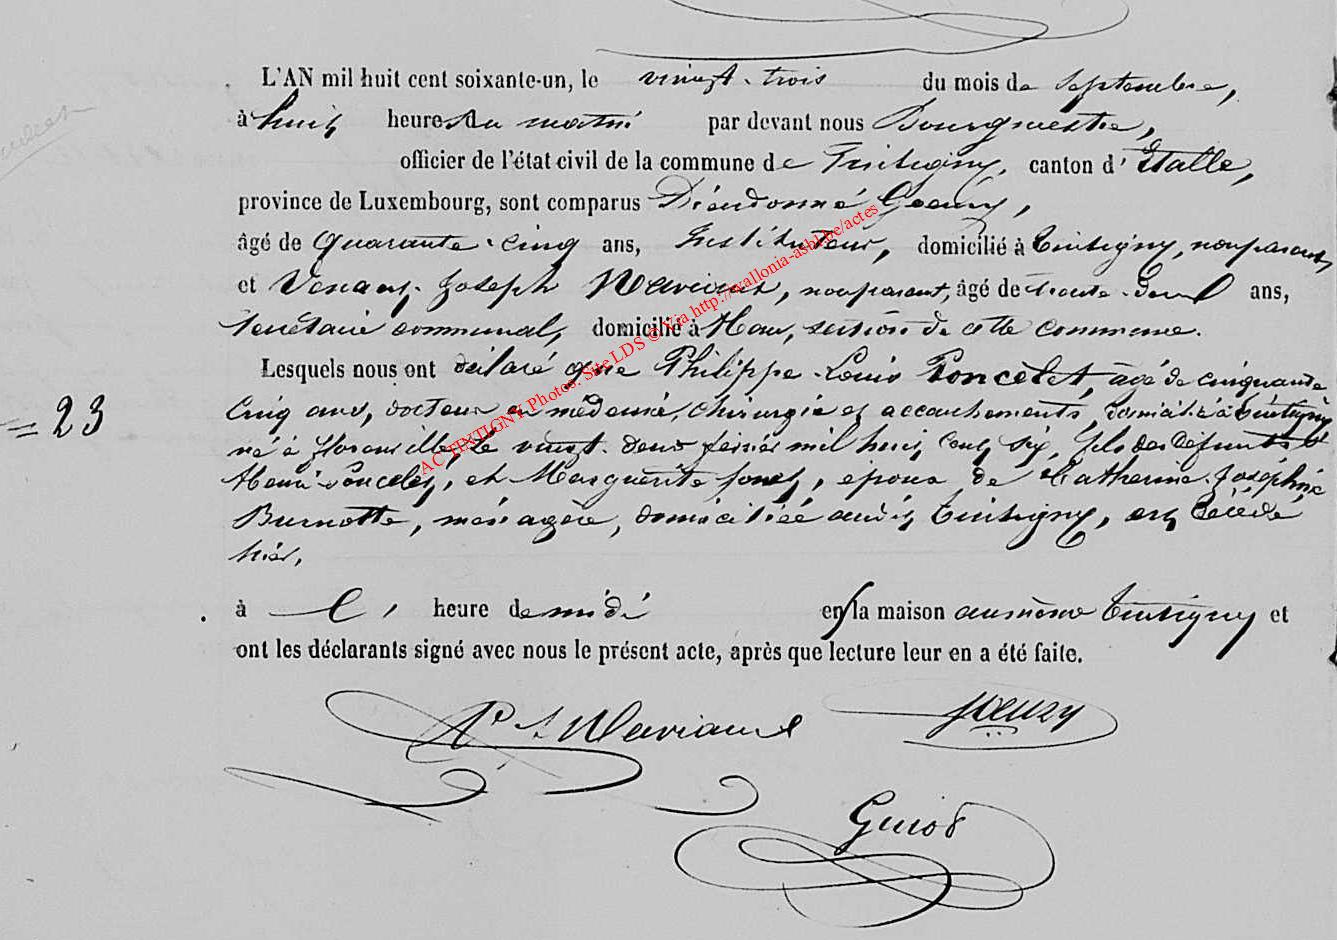 L'AN mil huit cent soixante-un, le vingt-trois du mois de Septembre,
à huit heures du matin par devant nous Bourgmestre,
officier de l'état civil de la commune de Tintigny, canton d'Etalle,
province de Luxembourg, sont comparus Dieudonné
âgé de quarante-cinq ans, Instituteur, domicilié à Tintigny, non parent,
et Joseph Naviaux, non parent, âgé de trente-deux ans,
Secrétaire communal, domicilié à Han, section de cette commune.
Lesquels nous ont déclaré que Philippe-Louis Poncelet, âgé de cinquante
= 23
cinq ans, docteur en médecine, chirurgie et accouchements, domicilié à Tintigny
né à Florenville, le vingt-deux février mil huit cent six, fils des défunts
Henri Poncelet, et Marguerite, époux de Catherine-Joséphine
Burnotte, ménagère, domiciliée audit Tintigny, est décédé
hier,
à l', heure de midi en sa maison au même Tintigny et
ont les déclarants signé avec nous le présent acte, après que lecture leur en a été faite.
Naviaux
Guiot
ACTINTIGNY Photos: Site LDS © Via http://wallonia-asbl.be/actes